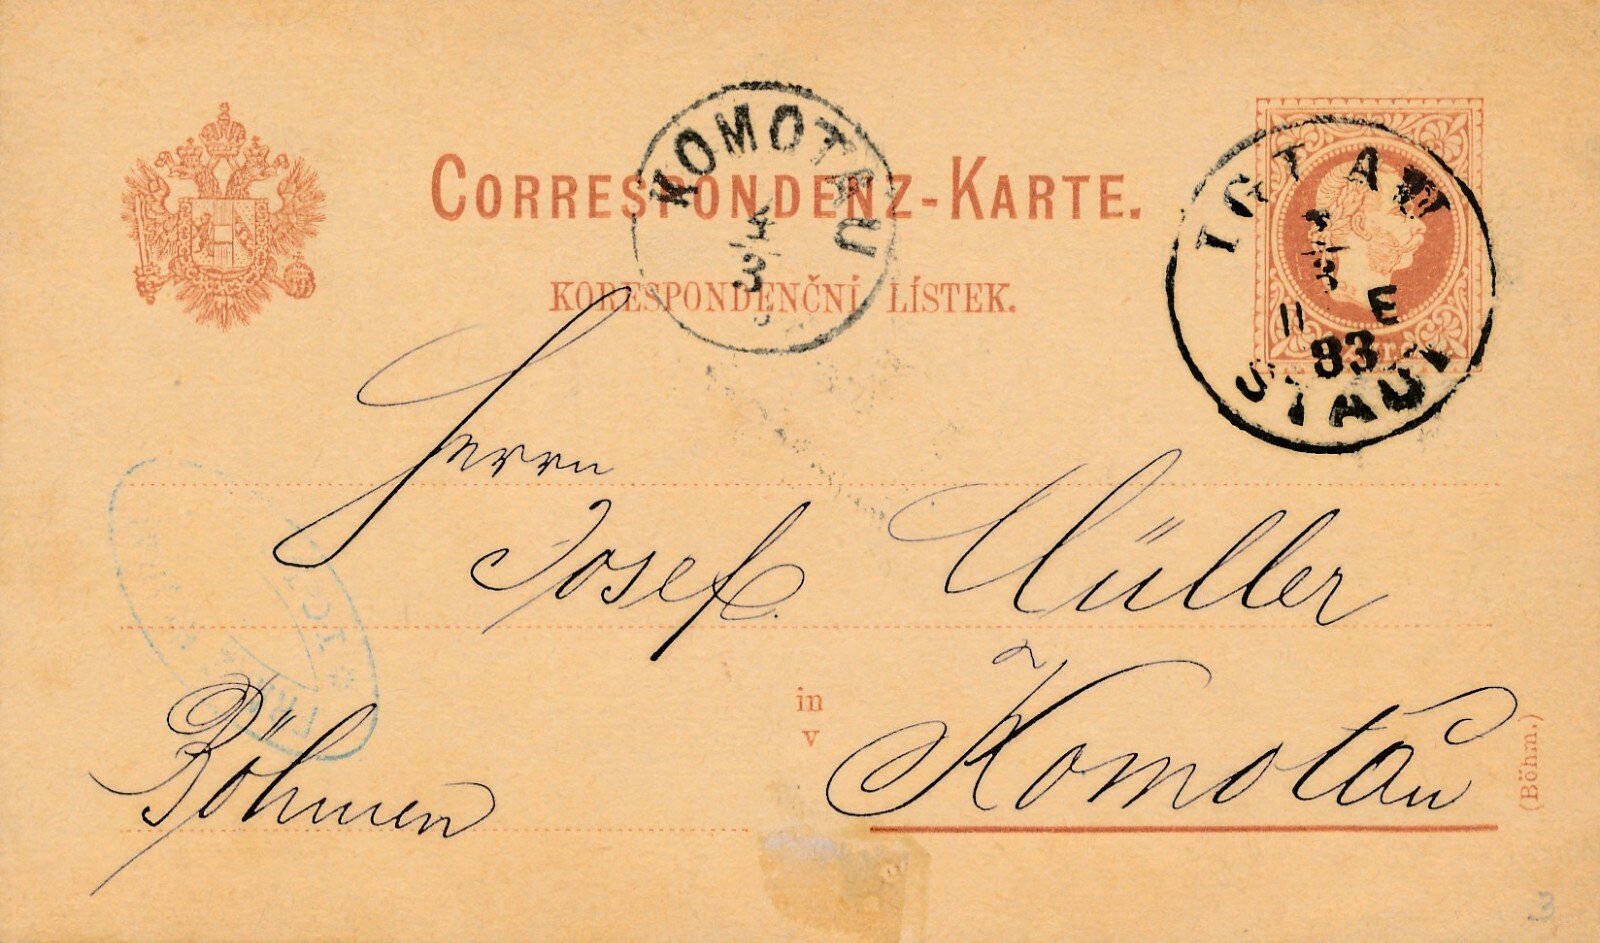 CORRESPONDENZ-KARTE.
KORESPONDENČNÍ LÍSTEK.
KOMOTAU
4
3
IGLAU
3
3
11 E
83
STADT
Herrn
Josef Müller
in
v
Komotau
Böhmen
(Böhm.)
3